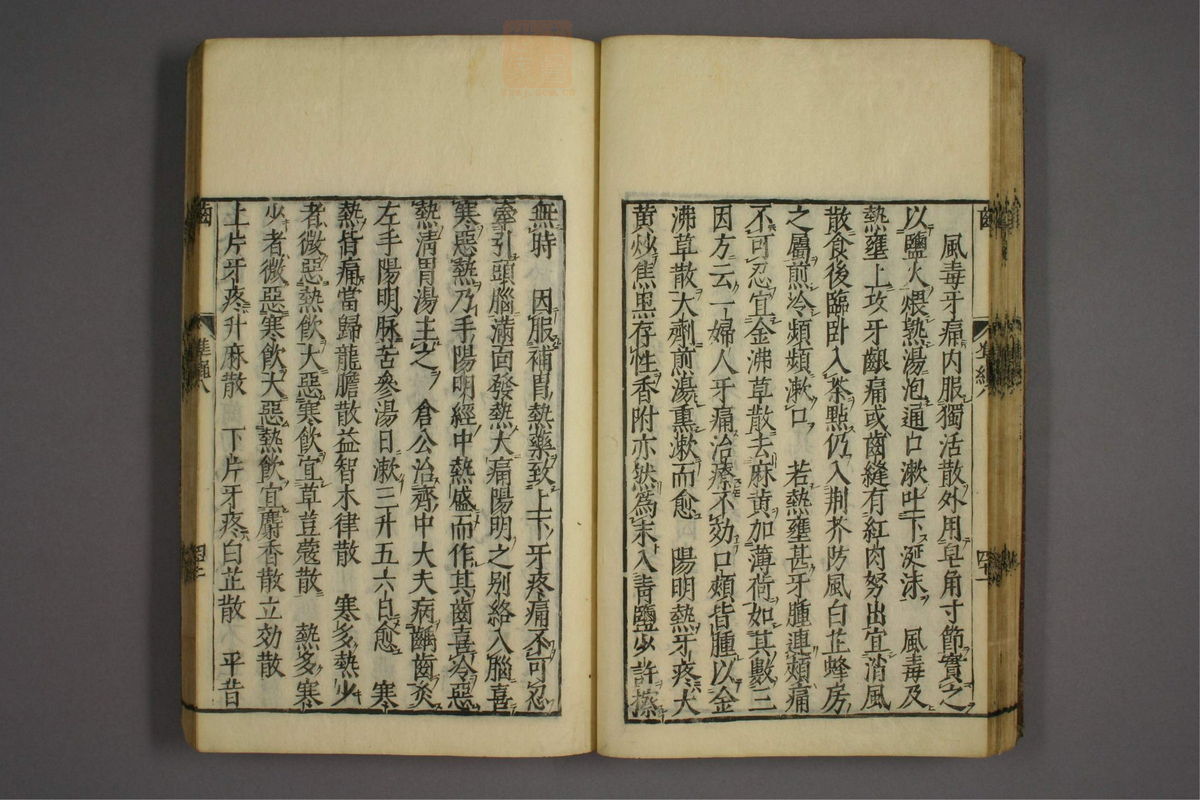 風毒牙痛內服獨活散外用皂角寸節實之
以鹽火煨熟湯泡通口漱吐下涎沫 風毒及
熱壅上攻牙齦痛或齒縫有紅肉努出宜消風
散食後臨卧入茶點仍入荆芥防風白芷蜂房
之屬煎冷頻頻漱口 若熱壅甚牙腫連頰痛
不可忍宜金沸草散去麻黃加薄荷如其數三
因方云一婦人牙痛治療不効口頰皆腫以金
沸草散大劑煎湯熏漱而愈 陽明熱牙疼大
黃炒焦黑存性香附亦然爲末入青鹽少許擦
無時 因服補胃熱藥致上下牙疼痛不可忍
牽引頭腦滿面發熱大痛陽明之别絡入腦喜
寒惡熱乃手陽明經中熱盛而作其齒喜冷惡
熱清胃湯主之 倉公治齊中大夫病齲齒灸
左手陽明脉苦參湯日漱三升五六日愈 寒
熱皆痛當歸龍膽散益智木律散 寒多熱少
者微惡熱飲大惡寒飲宜草荳蔻散 熱多寒
少者微惡寒飲大惡熱飲宜麝香散立効散
上片牙疼升麻散 下片牙疼白芷散 平昔